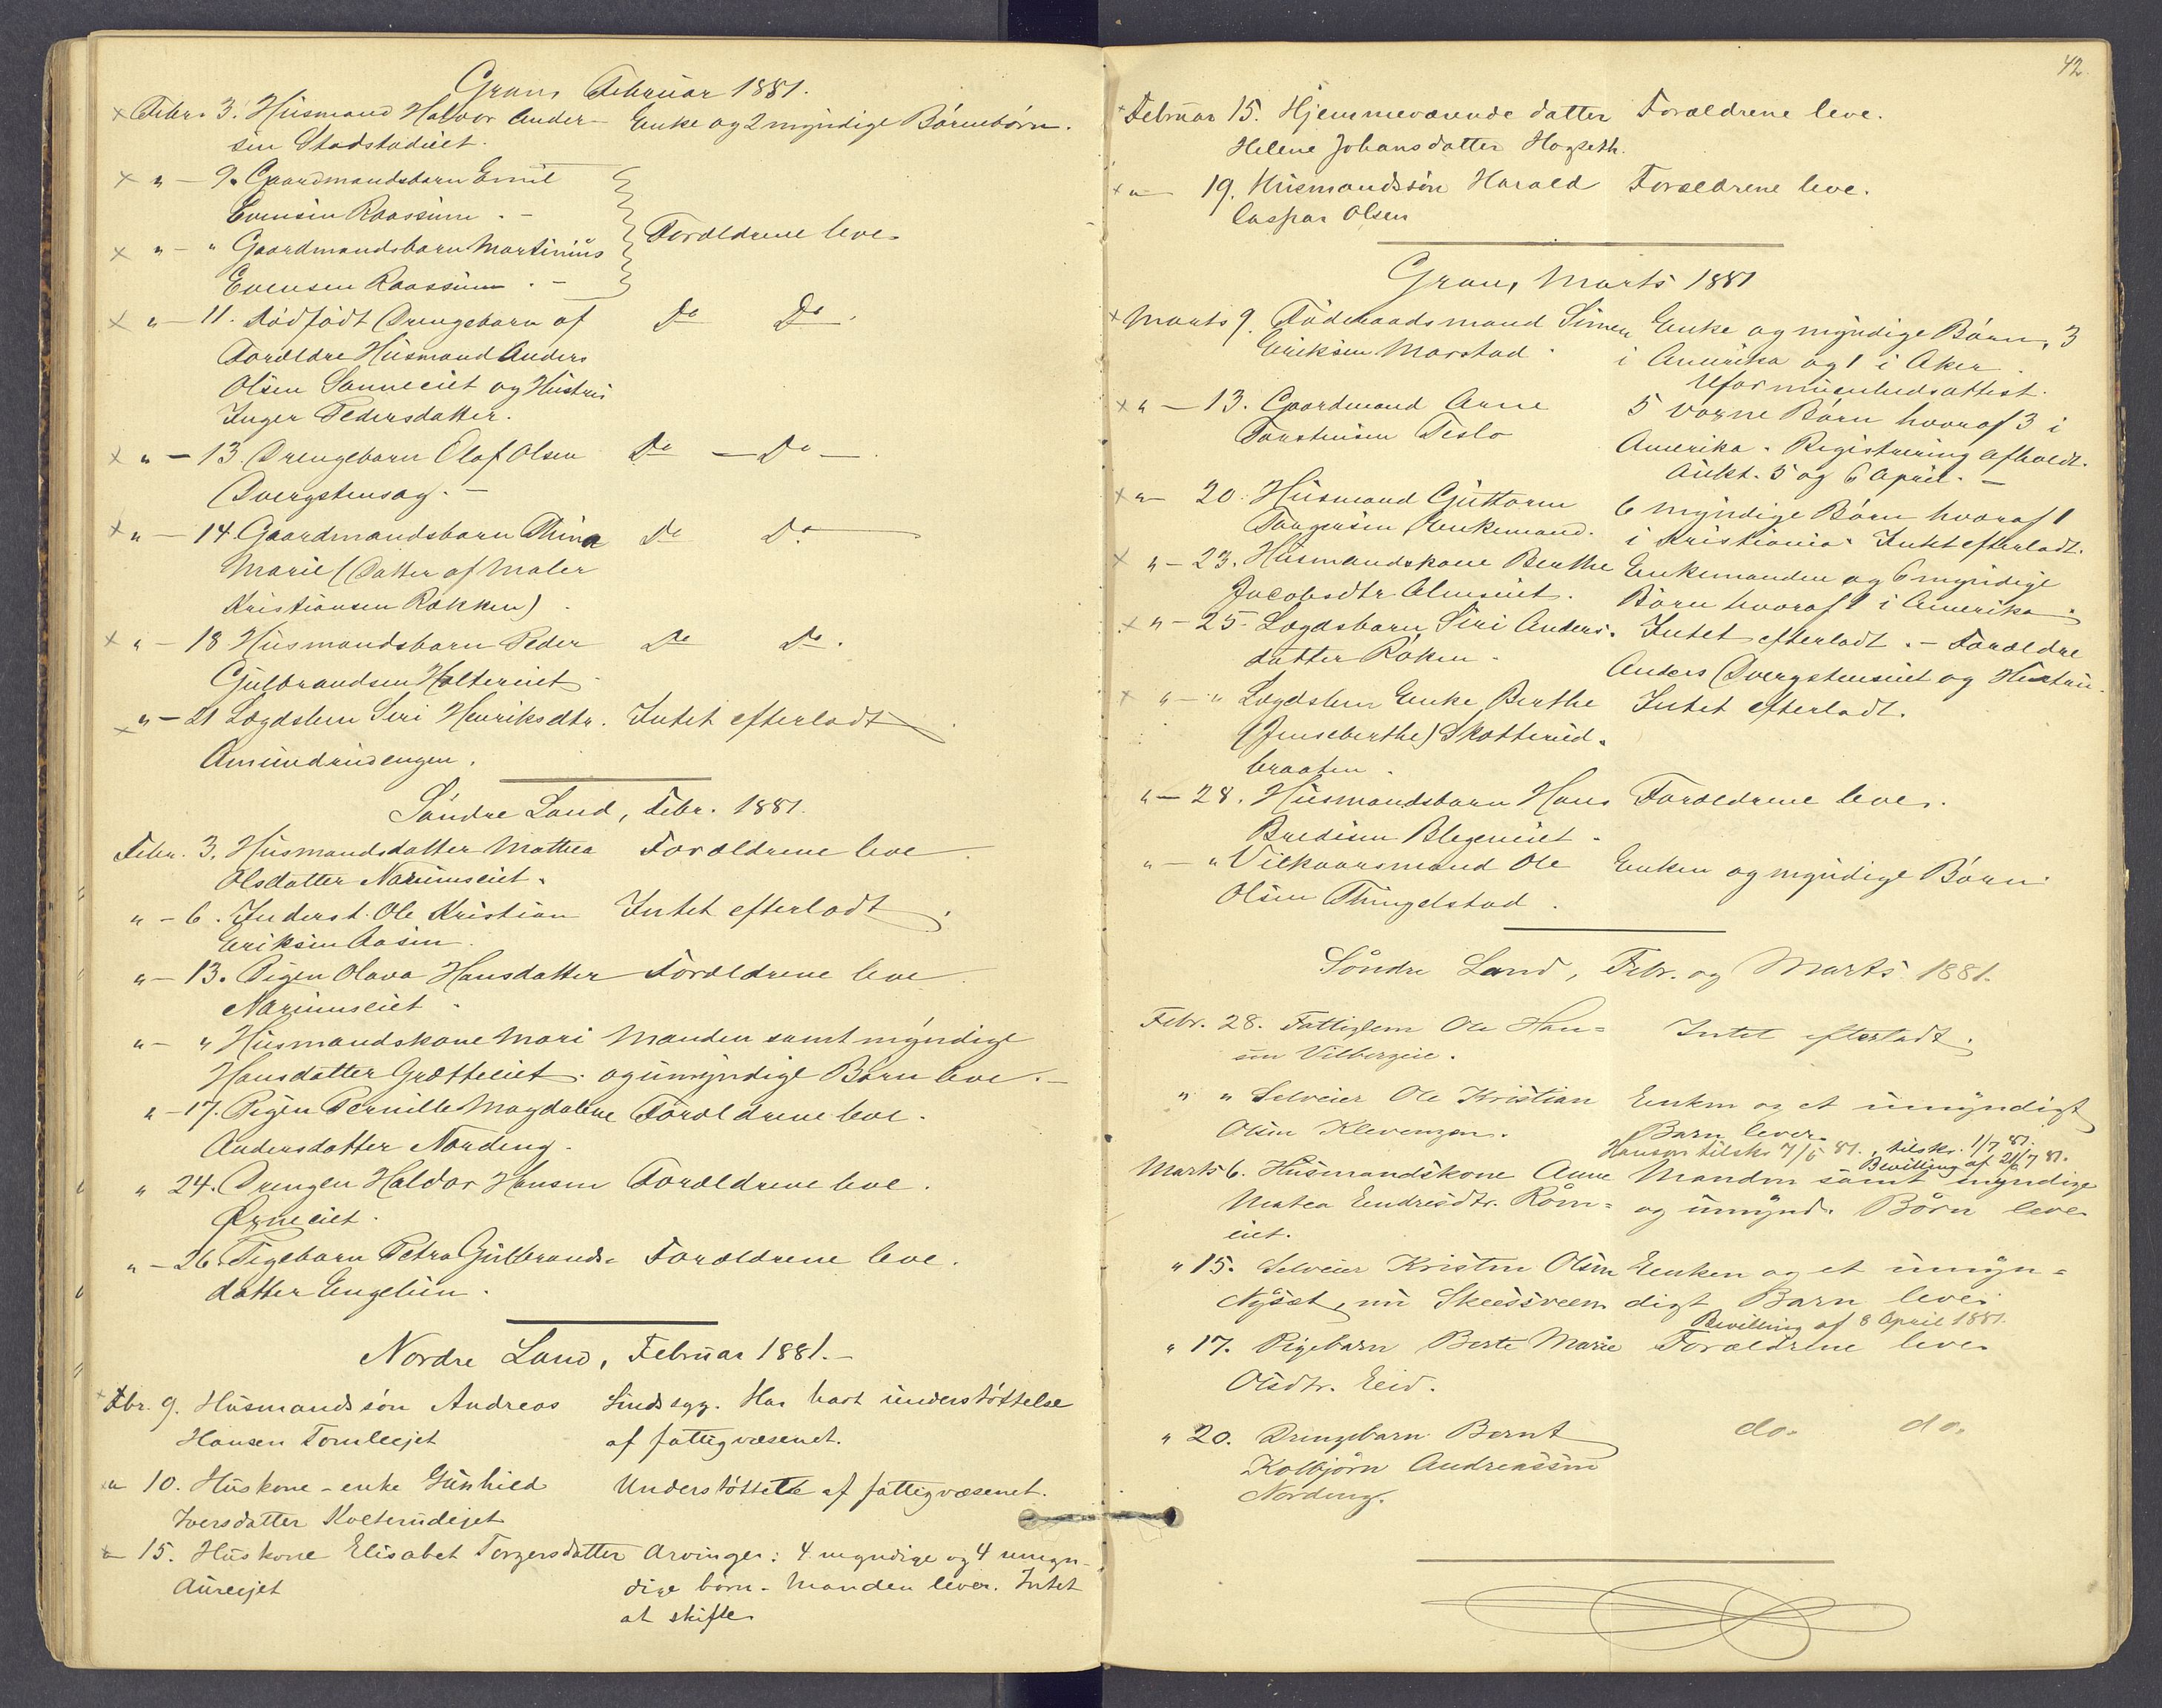 Gran, Februar 1881.
× Febr. 3. Husmand Halvor Ander- Enke og 2 myndige Børnebørn.
sen Stadstadeiet.
× " — 9. Gaardmandsbarn Emil
Evensen Raassum. —
Forældrene leve.
× " — " Gaardmandsbarn Martinius
Evensen Raassum. —
× " — 11. Dødfødt Drengebarn af Do Do.
Forældre Husmand Anders
Olsen Sanneeiet og Hustru
Inger Pedersdatter.
× " — 13. Drengebarn Olaf Olsen Do — Do —.
Dvergstensag. —
× " — 14. Gaardmandsbarn Thina Do Do.
Marie (Datter af Maler
Kristiansen Rækken).
× " — 18 Husmandsbarn Peder Do Do.
Gulbrandsen Holtereiet
× " — 21 Lægdslem Siri Henriksdtr. Intet efterladt.
Amundrudengen.
Søndre Land, Febr. 1881.
Febr. 3. Husmandsdatter Mathea Forældrene leve.
Olsdatter Narumseiet.
" — 6. Inderst. Ole Kristian Intet efterladt.
Eriksen Aasen.
" — 13. Pigen Olava Hansdatter Forældrene leve.
Narumseiet.
" — " Husmandskone Mari Manden samt myndige
Hansdatter Grætteeiet. og umyndige Børn leve. —
" — 17. Pigen Pernille Magdalene Forældrene leve.
Andersdatter Nordeng.
" 24. Drengen Haldor Hansen Forældrene leve.
eiet.
" — 26. Pigebarn Petra Gulbrands- Forældrene leve.
datter Engelien.
Nordre Land, Februar 1881. —
× Fbr. 9. Husmandssøn Andreas Sindssyg. Har havt understøttelse
Hansen Tomleejet af fattigvæsenet.
× " 10. Huskone - enke Gunhild Understøttet af fattigvæsenet.
Iversdatter Kolterudejet
× " 15. Huskone Elisabet Torgersdatter Arvinger: 4 myndige og 4 umyn-
Aureejet dige børn. Manden lever. Intet
at skifte.
42.
× Februar 15. Hjemmeværende datter Forældrene leve.
Helene Johansdatter Hogseth.
× " — 19. Husmandssøn Harald Forældrene leve.
Caspar Olsen
Gran, Marts 1881
× Marts 9. Föderaadsmand Simen Enke og myndige Børn, 3
Eriksen Morstad. i Amerika og 1 i Aker.
Uformuenhedsattest.
× " — 13. Gaardmand Arne 5 voxne Børn hvoraf 3 i
Torstensen Teslo Amerika. Registrering afholdt.
Aukt. 5 og 6 April. —
× " — 20. Husmand Guttorm 6 myndige Børn hvoraf 1
Torgersen, Enkemand. i Kristiania. Intet efterladt.
× " — 23. Husmandskone Berthe Enkemanden og 6 myndige
Jacobsdtr. Almseiet. Børn hvoraf 1 i Amerika.
× " — 25. Lægdsbarn Siri Anders- Intet efterladt. — Forældre
datter Røken. Anders Dvergsteneiet og Hustru.
× " — " Lægdslem Enke Berthe Intet efterladt.
(Jenseberthe) Skotterud-
braaten.
" — 28. Husmandsbarn Hans Forældrene leve.
Bredesen Blegeneiet.
" — " Vilkaarsmand Ole Enken og myndige Børn.
Olsen Thingelstad.
Søndre Land, Febr. og Marts 1881.
Febr. 28. Fattiglem Ole Han- Intet efterladt.
sen Vilbergeie.
" " Selveier Ole Kristian Enken og et umyndigt
Olsen Klevengen. Barn lever.
Hansen tilskr 7/5 81., tilskr. 1/7 81.
Bevilling af 21/7 81.
Marts 6. Husmandskone Anne Manden samt myndige
Matea Endresdtr. Røm- og umynd. Børn leve.
eiet.
" 15. Selveier Kristen Olsen Enken og et umyn-
Nysæt, nu Skeessveen digt Barn leve.
Bevilling af 8 April 1881.
" 17. Pigebarn Berte Marie Forældrene leve.
Olsdtr. Eid.
" 20. Drengebarn Bernt do. do.
Kolbjørn Andreassen
Nordeng.